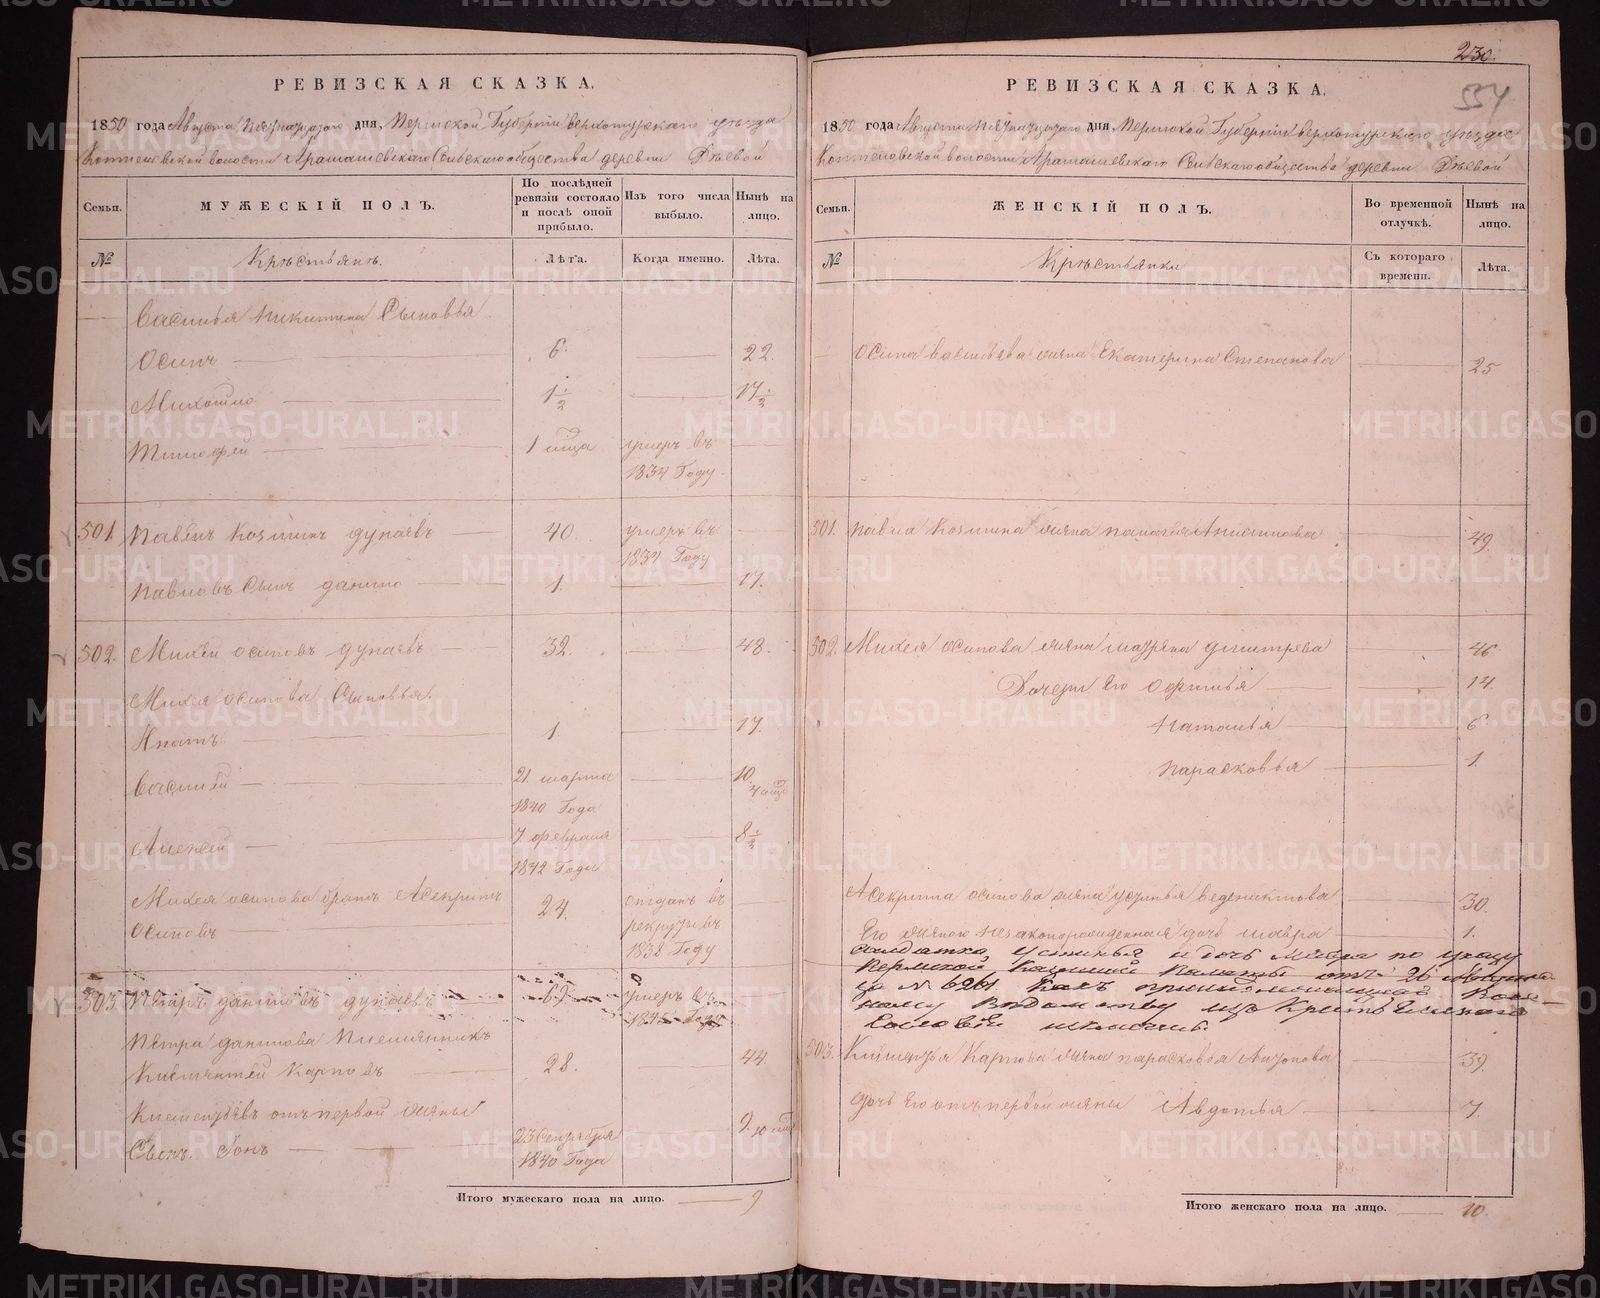 230.
554
РЕВИЗСКАЯ СКАЗКА.
1850 года Августа Пятнадцатого дня, Пермской Губернии Верхотурскаго уезда
волости Арамашевскаго Сельскаго общества деревни Ряевой
Семьи.
МУЖЕСКІЙ ПОЛЪ.
По послѣдней ревизіи состояло и послѣ оной прибыло.
Изъ того числа выбыло.
Нынѣ на лицо.
№
Крѣстьянъ.
Лѣта.
Когда именно.
Лѣта.
Василья Никитина Сыновья
Осипъ 6. 22.
Михайло 1 1/2 17 1/2
Тимофей 1 мца умеръ въ
1834 Году
501. Павелъ Козминъ Дунаевъ 40. умеръ въ
1834 Году
Павловъ Сынъ Данило 1. 17.
502. Михей Осиповъ Дунаевъ 32. 48.
Михея Осипова Сыновья.
Ипатъ 1. 17.
Василей 21. марта 10.
1840 Года 4 мца
Алексей 7 февраля 8 1/2
1842 Года
Михея Осипова братъ Асекритъ
Осиповъ 24. отданъ въ
рекруты въ
1838 Году
503. Петръ Даниловъ Дунаевъ 67 умеръ въ
1845 Году
Петра Данилова Племянникъ
Климянтей Карповъ 28. 44.
отъ первой жены
Сынъ. Гонъ 23 Сентября 9. 10 мца
1840 Года
Итого мужескаго пола на лицо. 9
РЕВИЗСКАЯ СКАЗКА.
1850 года Августа Пятнадцатого дня, Пермской Губернии Верхотурскаго уезда
волости Арамашевскаго Сельскаго общества деревни Ряевой
Семьи.
ЖЕНСКІЙ ПОЛЪ.
Во временной отлучкѣ.
Нынѣ на лицо.
№
Крѣстьянки
Съ котораго времени.
Лѣта.
Осипа Васильева жена Екатерина Степанова 25
501. Павла Козмина жена 49.
502. Михея Осипова жена Матрена Дмитрева 46
Дочери Его Офимья 14
Наталья 6
Парасковья 1.
Асекрита Осипова жена Устинья Веденихтова 30.
Его жены незаконорожденная дочь Мавра 1.
салдатка Устинья и дочь Мавра по указу
Пермской Казенной Палаты отъ 26
за № 6961 какъ принадлежащия Воен-
ному Ведомству изъ Крестьянскаго
Сословия исключены.
503. Карпова жена Парасковья 39.
дочь Его отъ первой жены Авдотья 7.
Итого женскаго пола на лицо. 10.
METRIKI.GASO-URAL.RU